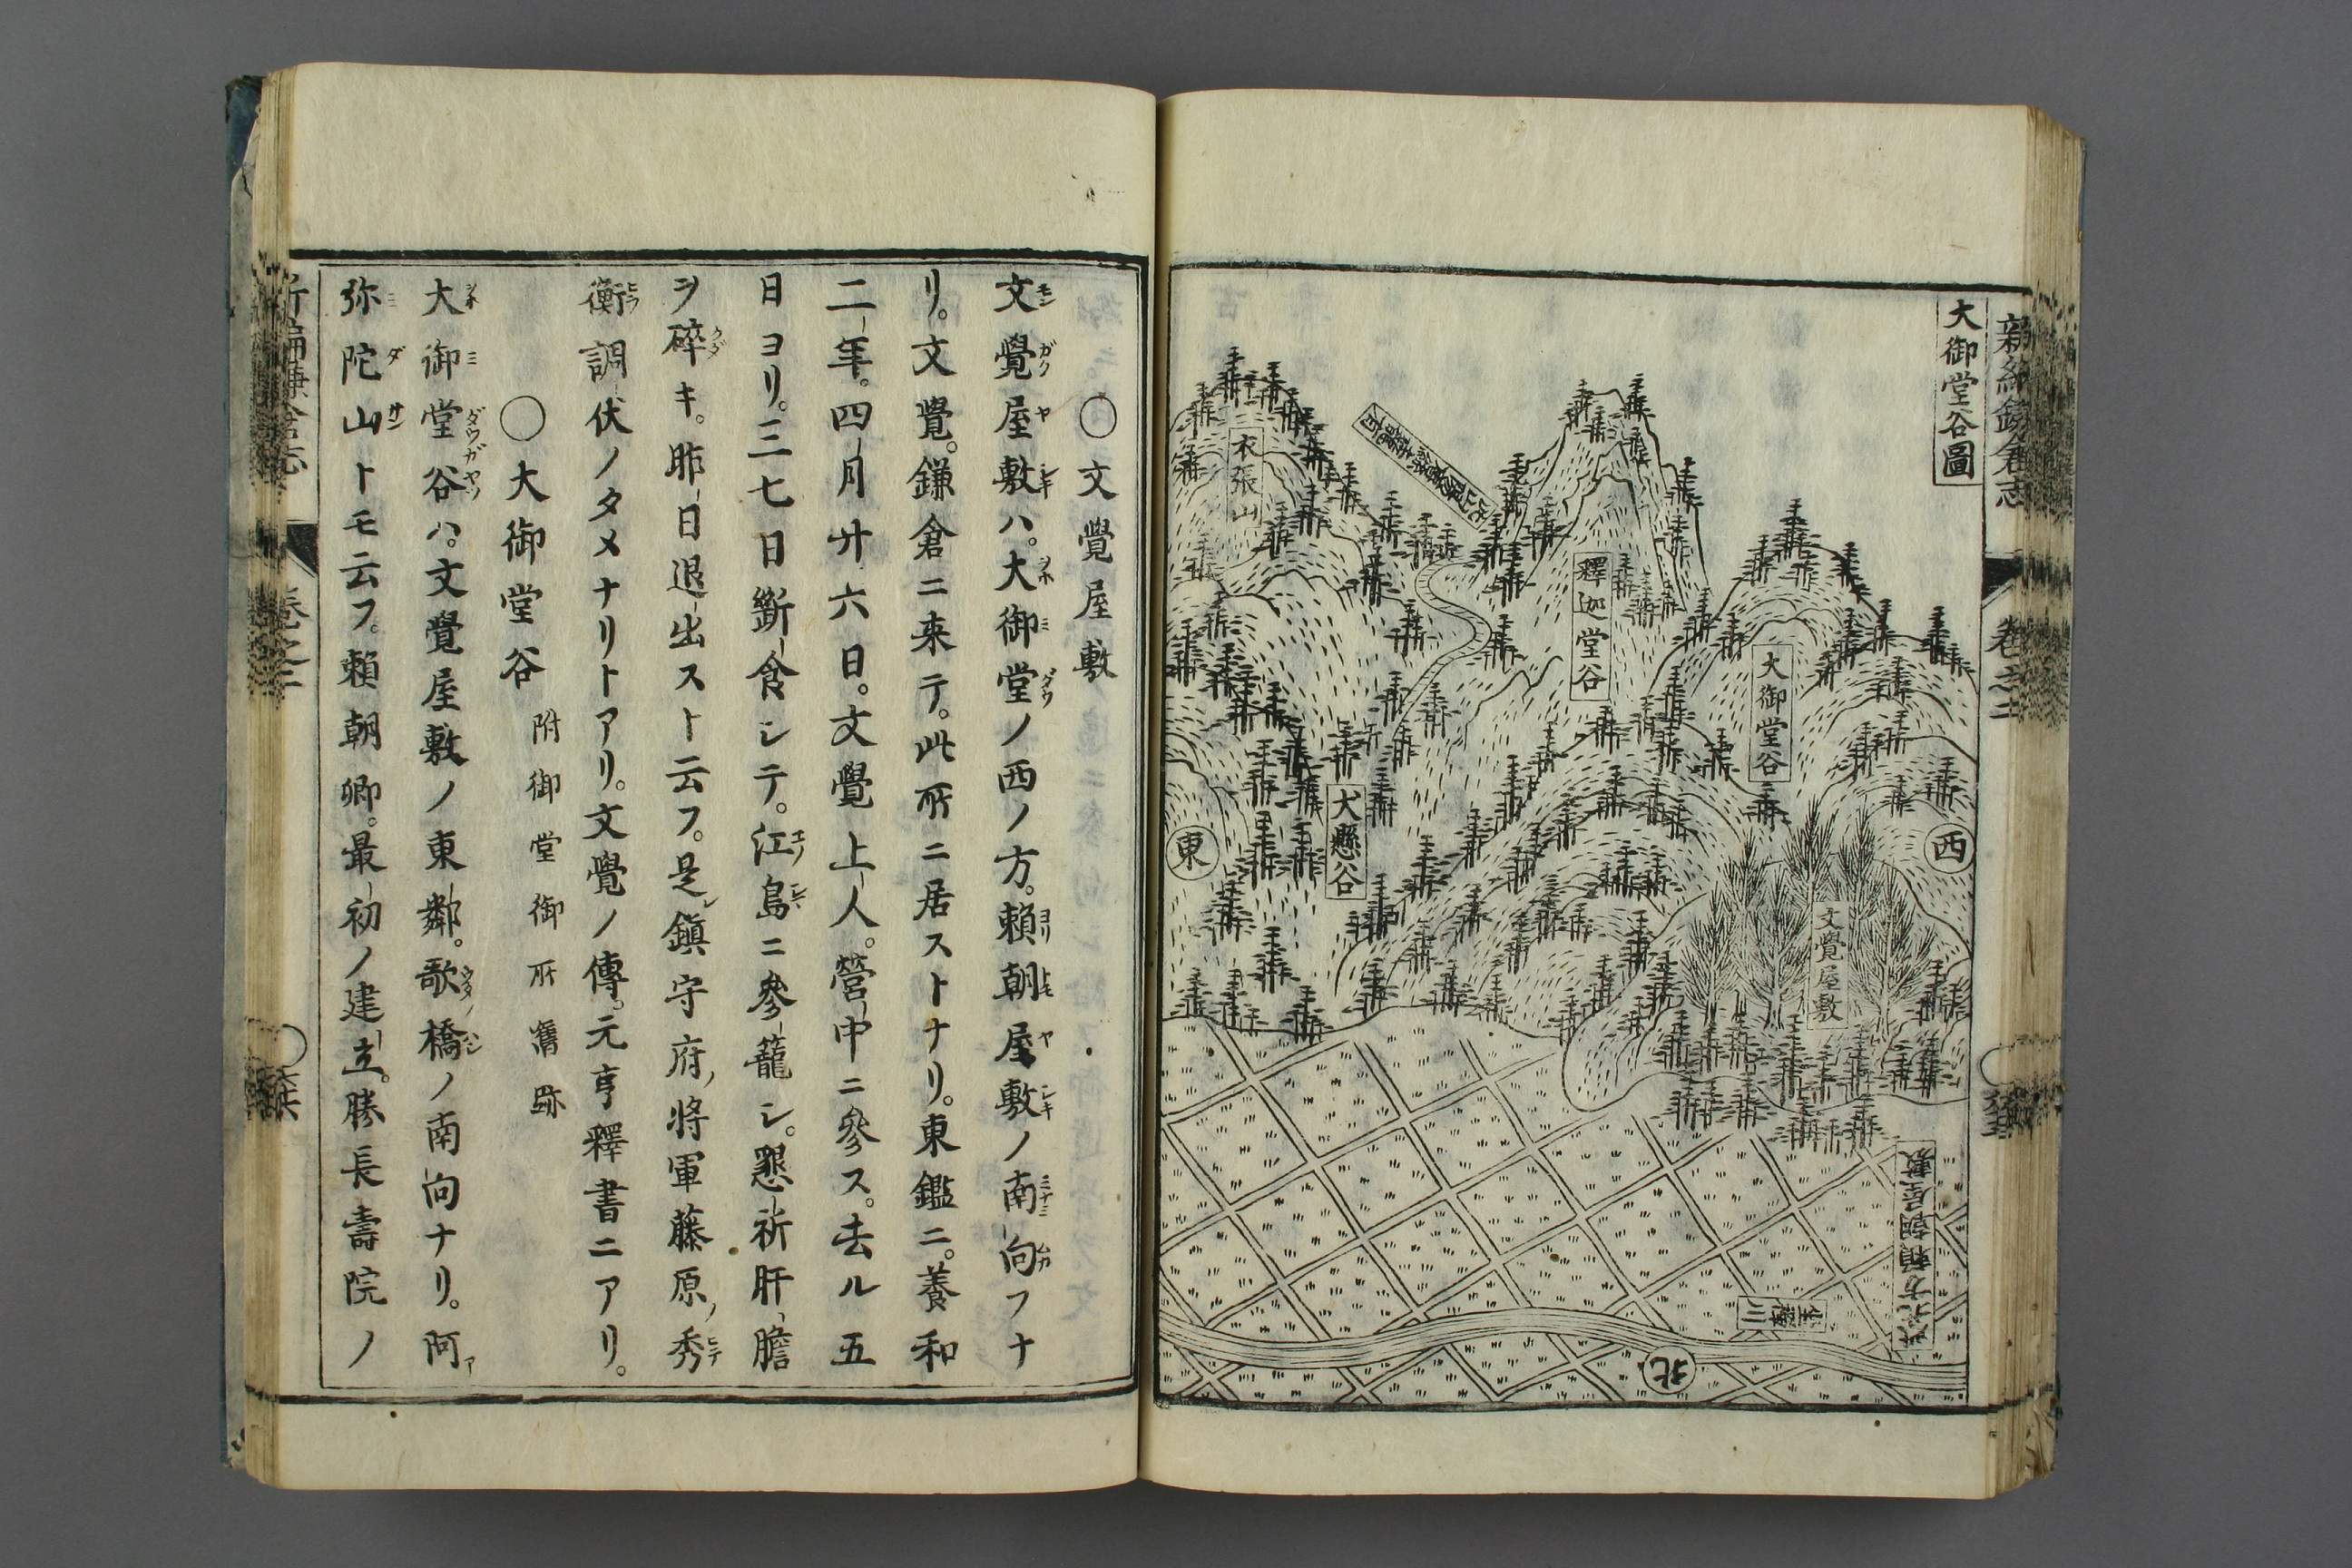 新編鎌倉志
卷之二
大御堂谷圖
西
大御堂谷
文覺屋敷
此北方賴朝屋敷
釋迦堂谷
北
犬懸谷
衣張山
東
○文覺屋敷
文覺屋敷ハ。大御堂ノ西ノ方。賴朝屋敷ノ南向フナ
リ。文覺。鎌倉ニ來テ。此所ニ居ストナリ。東鑑ニ。養和
二年。四月廿六日。文覺上人。營中ニ參ス。去ル五
日ヨリ。三七日斷食シテ。江島ニ參籠シ。懇祈肝膽
ヲ碎キ。昨日退出スト云フ。是鎭守府ノ將軍藤原ノ秀
衡調伏ノタメナリトアリ。文覺ノ傳。元亨釋書ニアリ。
○大御堂谷 附御堂御所舊跡
大御堂谷ハ。文覺屋敷ノ東鄰。歌橋ノ南向ナリ。阿
弥陀山トモ云フ。賴朝卿。最初ノ建立。勝長壽院ノ
新編鎌倉志
卷之二